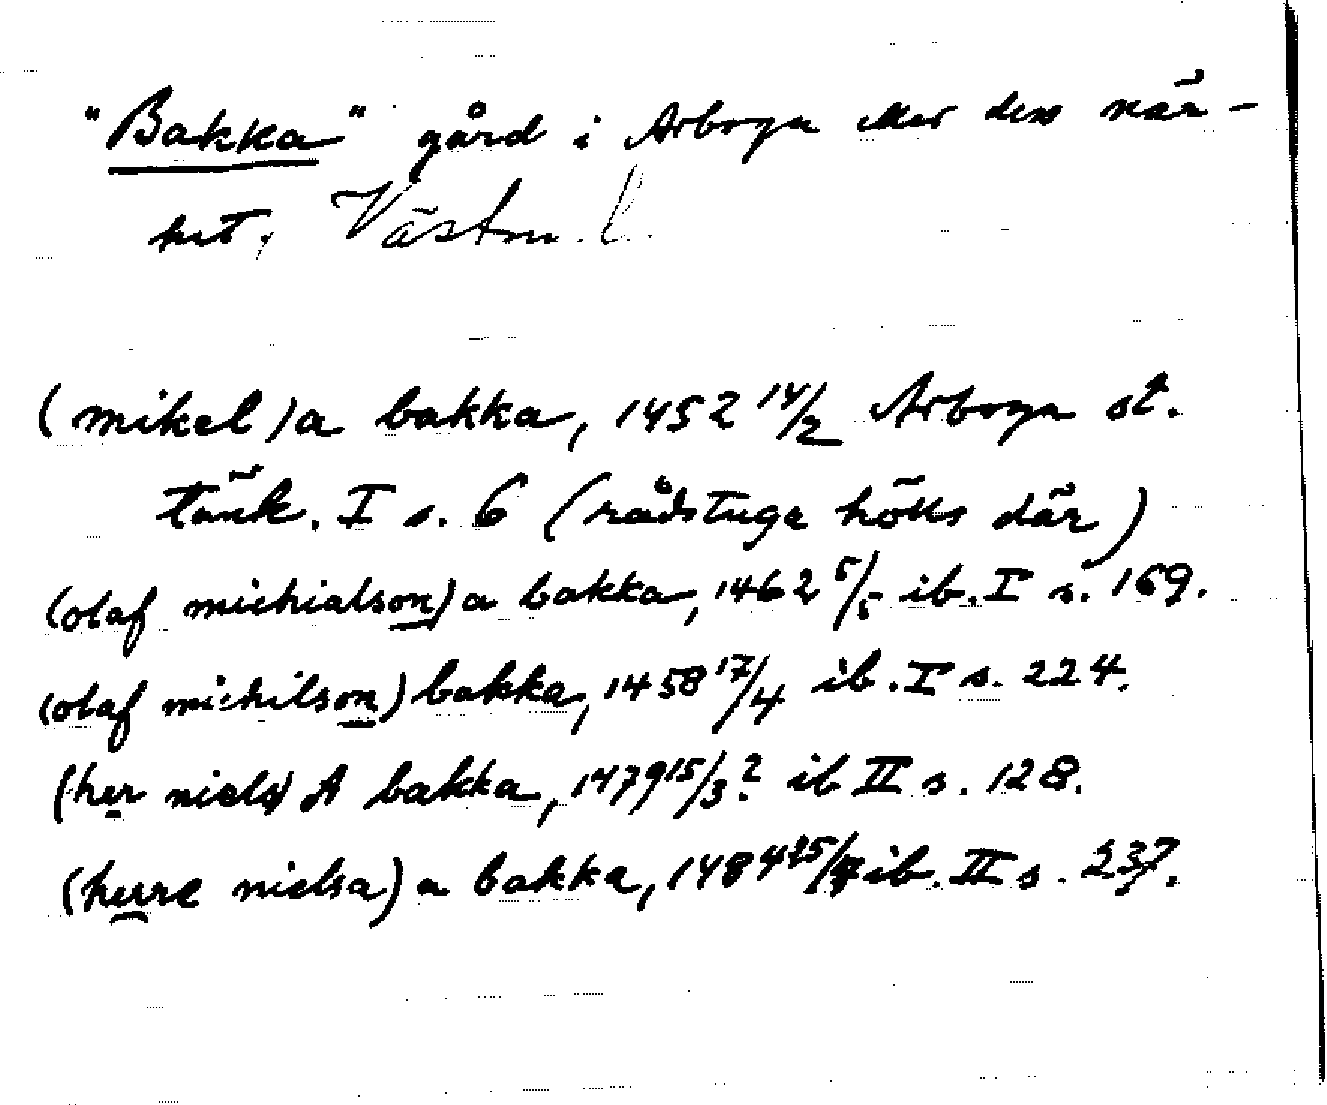 "Bakka" gård i Arboga eller dess när-
het, Västm. l.
(mikel) a bakka, 1452 14/2 Arboga st.
tänk. I s. 6 (rådstuga hölls där)
(olaf michialson) a bakka, 1462 5/5 ib. I s. 169.
(olaf michilson) bakka, 1458 17/4 ib. I s. 224.
(her niels) A bakka, 1479 15/3? ib II s. 128.
(herre nielsa) a bakka, 1484 ib. II s. 237.